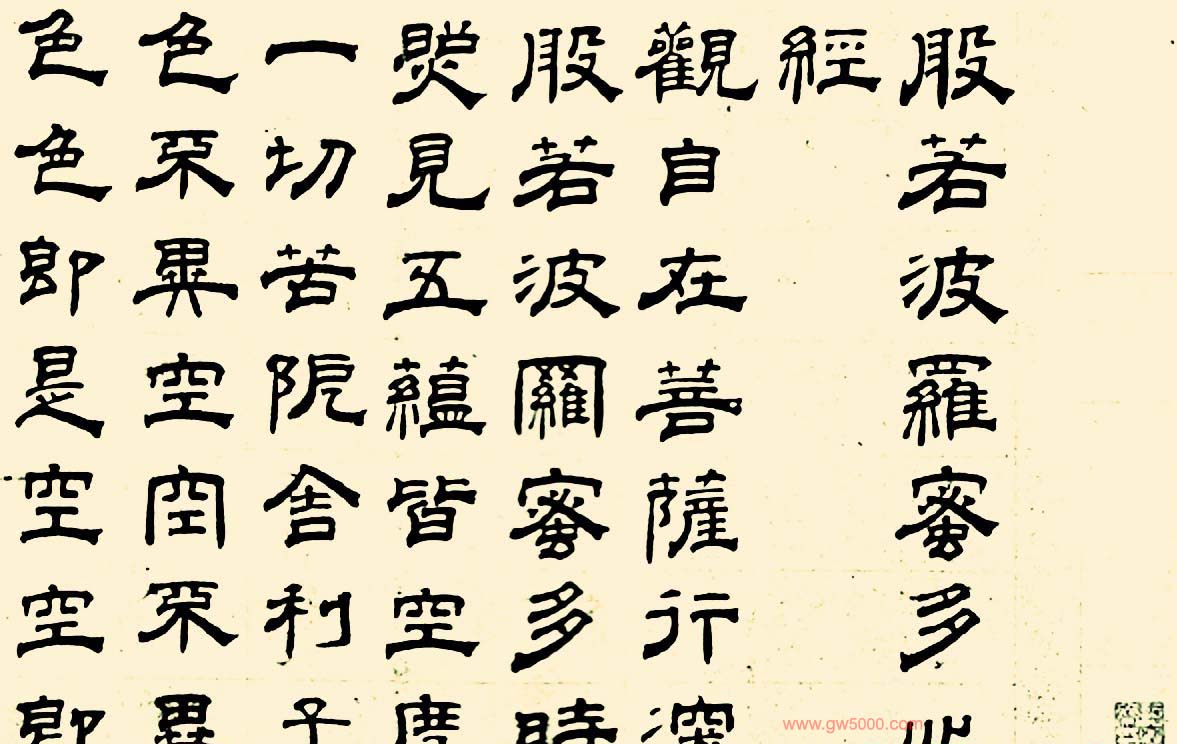 般若波羅蜜多心
經
觀自在菩薩行深
般若波羅蜜多時
照見五蘊皆空度
一切苦阨舍利子
色不異空空不異
色色即是空空即
www.gw5000.com